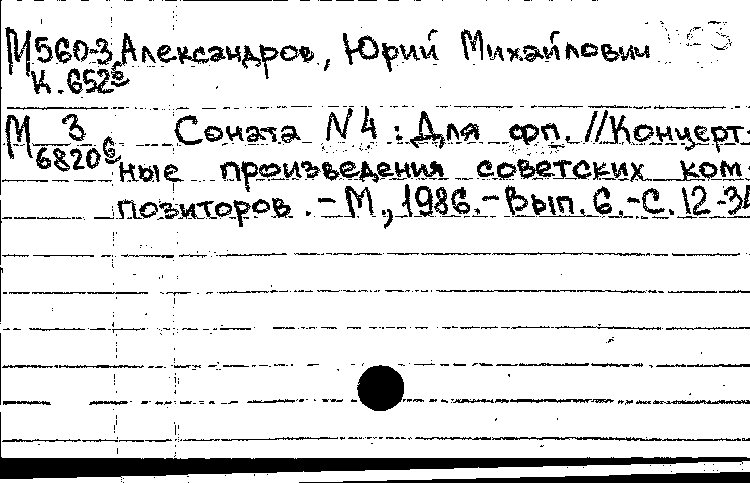 М560-3 Александров, Юрий Михайлович
К.652е
М 3 Соната N4 : Для фп. //Концерт-
6820 ные произведения советских ком-
позиторов. – М., 1986. – Вып. 6. – С. 12-34